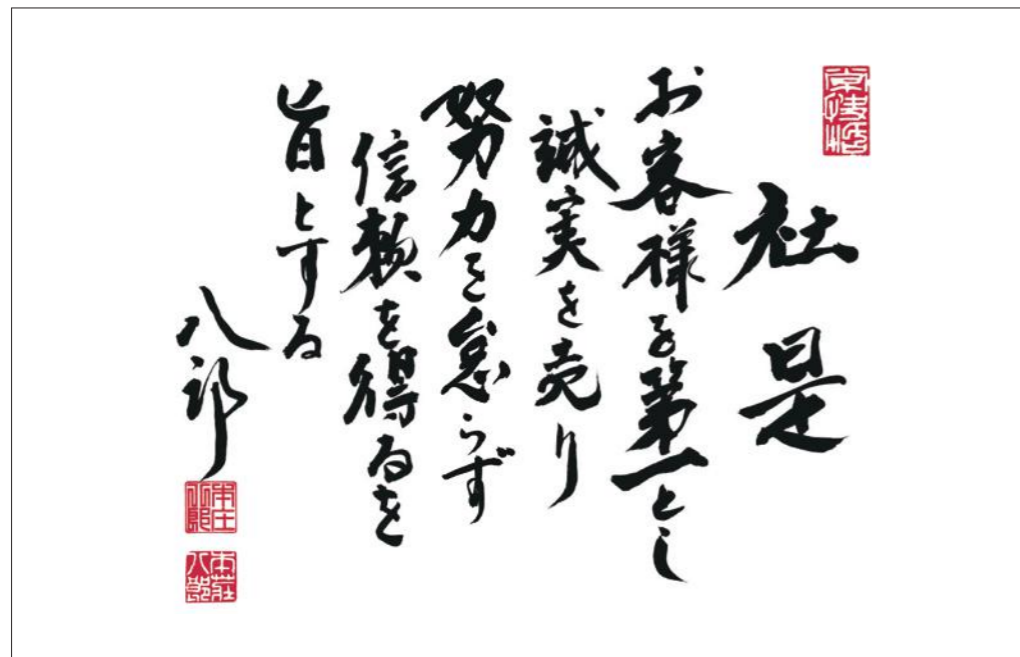 社是
お客様を第一とし
誠実を売り
努力を怠らず
信頼を得るを
旨とする
八郎
本庄八郎
本荘八郎